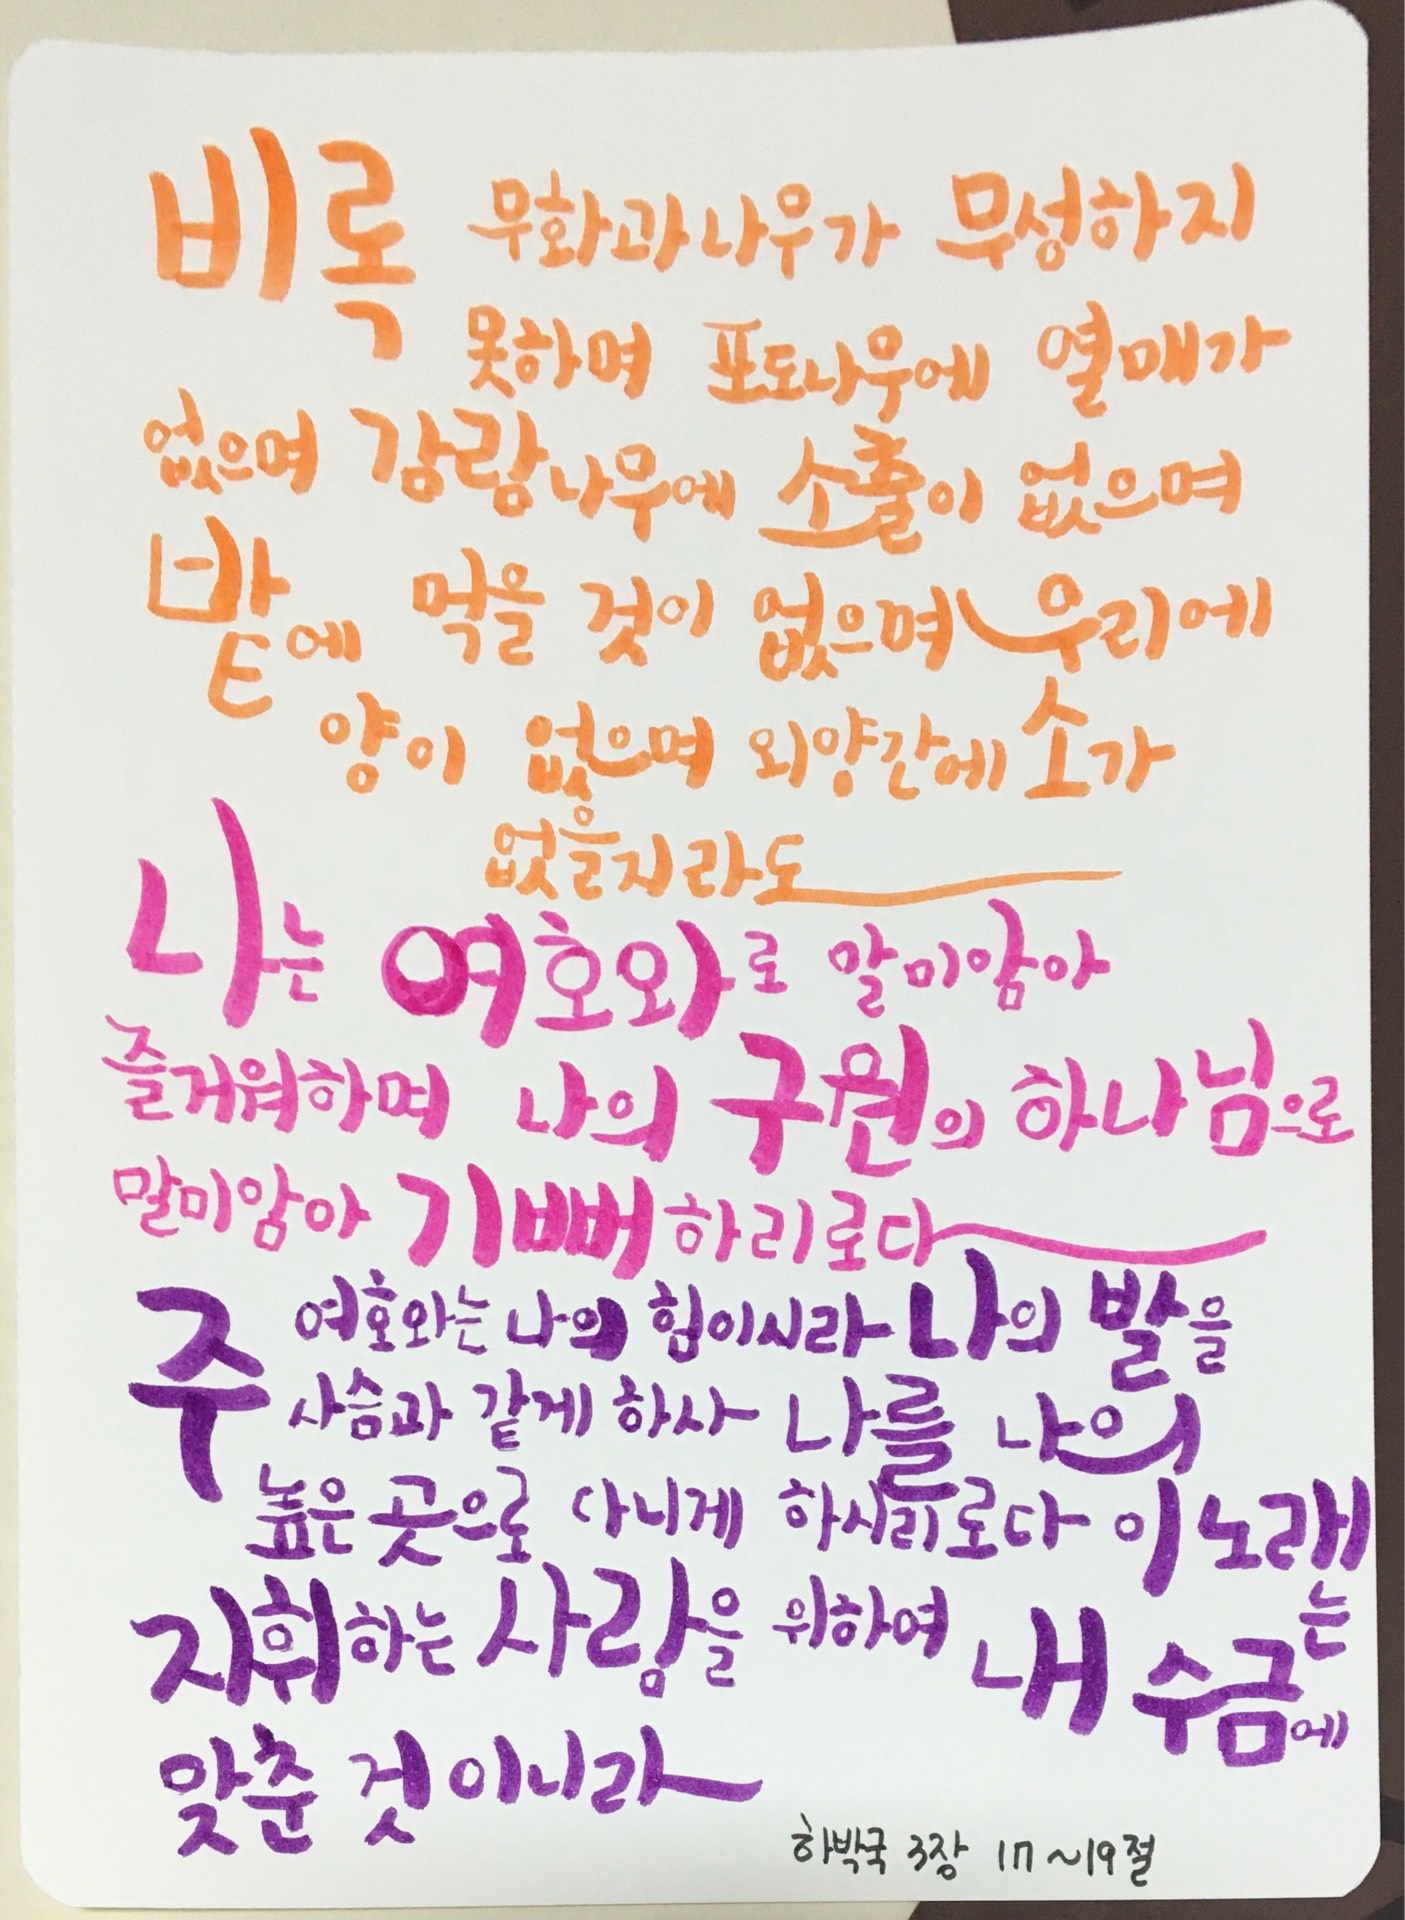 비록 무화과나무가 무성하지
못하며 포도나무에 열매가
없으며 감람나무에 소출이 없으며
밭에 먹을 것이 없으며 우리에
양이 없으며 외양간에 소가
없을지라도
나는 여호와로 말미암아
즐거워하며 나의 구원의 하나님으로
말미암아 기뻐하리로다
주 여호와는 나의 힘이시라 나의 발을
사슴과 같게 하사 나를 나의
높은 곳으로 다니게 하시리로다 이 노래는
지휘하는 사랑을 위하여 내 수금에
맞춘 것이니라
하박국 3장 17~19절